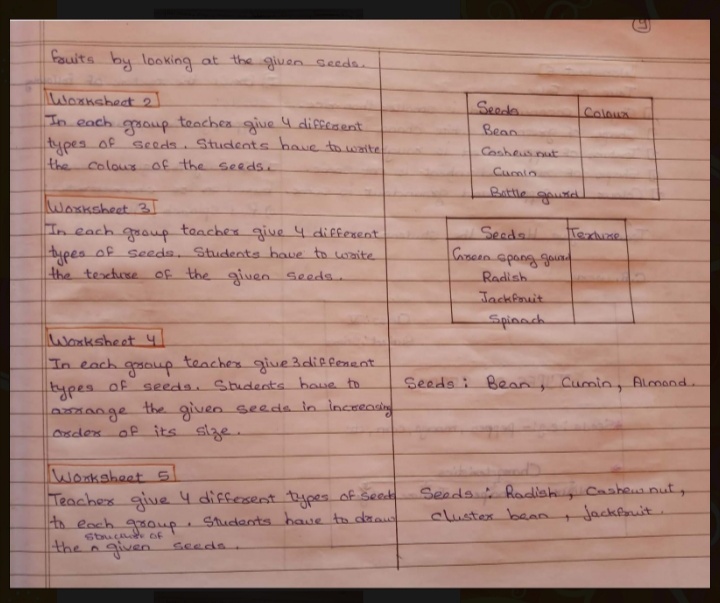 9
fruits by looking at the given seeds.
Worksheet 2
In each group teacher give 4 different
types of seeds. Students have to write
the colour of the seeds.
Seeds Colour
Bean
Cashew nut
Cumin
Bottle gourd
Worksheet 3
In each group teacher give 4 different
types of seeds. Students have to write
the texture of the given seeds.
Seeds Texture
Green spong gourd
Radish
Jackfruit
Spinach
Worksheet 4
In each group teacher give 3 different
types of seeds. Students have to
arrange the given seeds in increasing
order of its size.
Seeds : Bean, Cumin, Almond.
Worksheet 5
Teacher give 4 different types of seeds
to each group. Students have to draw
structure of
the ^ given seeds.
Seeds : Radish, Cashew nut,
cluster bean, jackfruit.